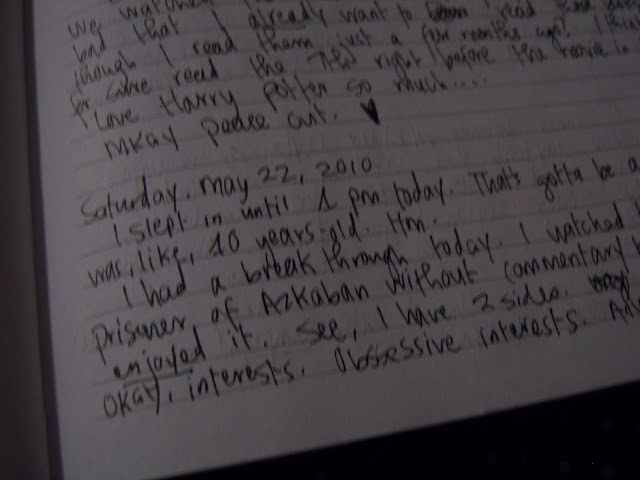 we watched
bad that I already want to read them
though I read them just a few months ago? I think
for sure read the 7th right before the movie in
I love Harry Potter so much....
mkay peace out. ♥
Saturday. may 22, 2010
I slept in until 1 pm today. That's gotta be a
was, like, 10 years-old. Hm.
I had a break through today. I watched
prisoner of Azkaban without commentary
enjoyed it. See, I have 2 sides.
okay, interests. Obssessive interests.